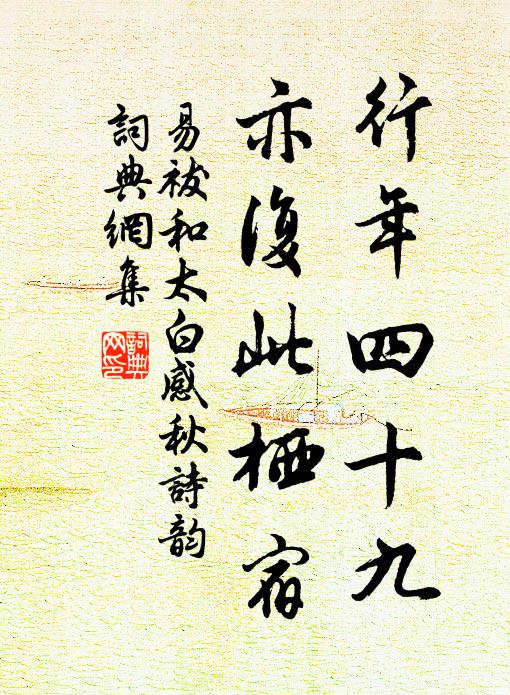 行年四十九
亦復此栖宿
易祓和太白感秋詩韵
詞典網集
詞典網印